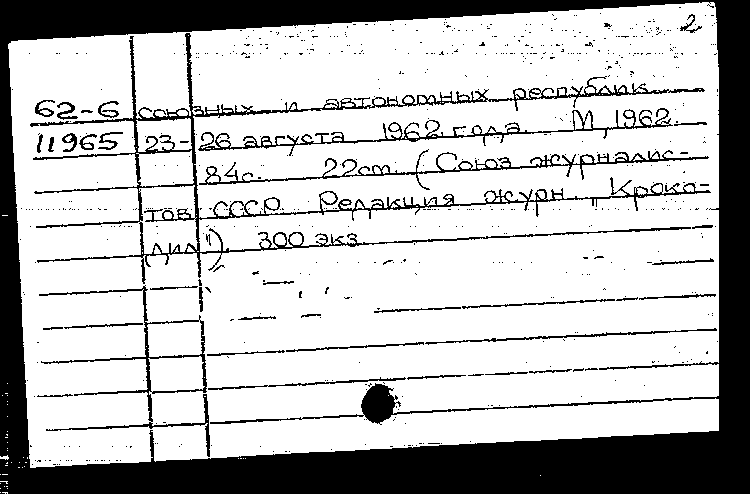 2
62-6 союзных и автономных республик
11965 23-26 августа 1962 года. М, 1962.
84с. 22см. (Союз журналис-
тов СССР. Редакция журн. „Кроко-
дил"). 300 экз.